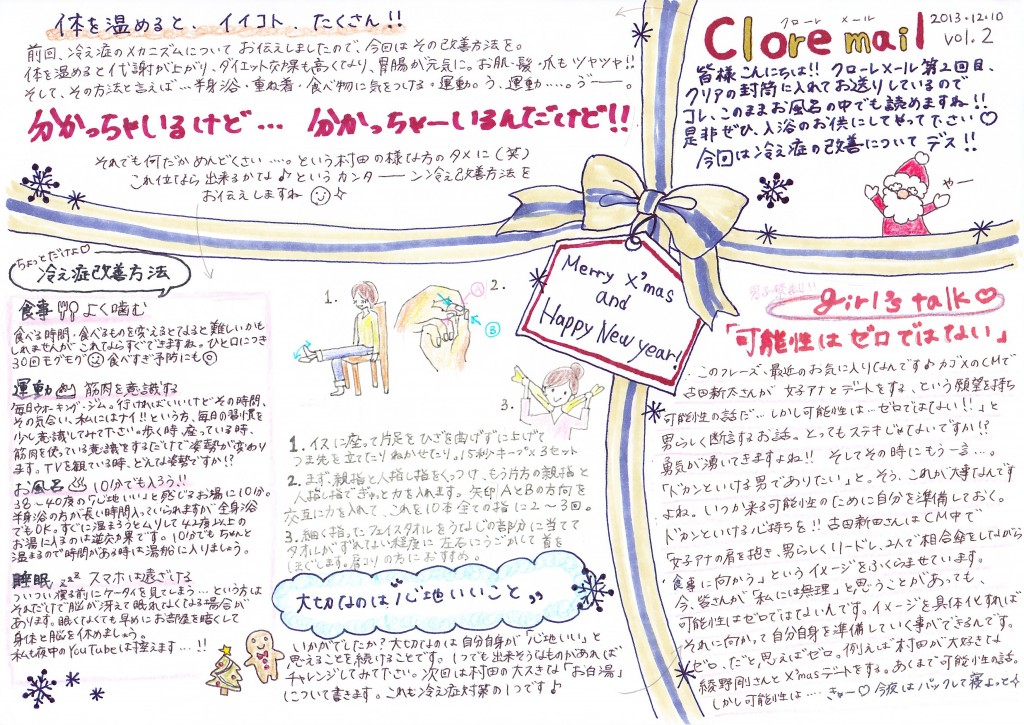 体を温めると、イイコト、たくさん!!
前回、冷え症のメカニズムについてお伝えしましたので、今回はその改善方法を。
体を温めると代謝が上がり、ダイエット効果も高くなり、胃腸が元気に。お肌・髪・爪もツヤツヤ!!
そして、その方法と言えば…半身浴・重ね着・食べ物に気をつける・運動。う、運動…。うー。
分かっちゃいるけど… 分かっちゃーいるんだけど!!
それでも何だかめんどくさい…。という村田の様な方のタメに(笑)
これ位なら出来るかな♪というカンターーン冷え改善方法を
お伝えしますね
クローレ メール
Clore mail
2013.12.10
vol.2
皆様こんにちは!! クローレメール第2回目、
クリアの封筒に入れてお送りしているので
コレ、このままお風呂の中でも読めますね!!
是非ぜひ、入浴のお供にしてやって下さい♡
今回は冷え症の改善についてデス!!
やー
Merry X'mas
and
Happy New year!
ちょっとだけよ♡
冷え症改善方法
食事 よく噛む
食べる時間・食べるものを変えるとなると難しいかも
しれませんが、これならすぐできますね。ひと口につき
30回モグモグ 食べすぎ予防にも◎
運動 筋肉を意識する
毎日ウォーキング・ジム。行ければいいけどその時間、
その気合い、私にはナイ!!という方、毎日の習慣を
少し意識してみて下さい。歩く時、座っている時、
筋肉を使っている意識をするだけで姿勢が変わり
ます。TVを観ている時、どんな姿勢ですか!?
お風呂 10分でも入ろう!!
38〜40度の「心地いい」と感じるお湯に10分。
半身浴の方が長い時間入っていられますが全身浴
でもOK。すぐに温まろうとムリして42度以上の
お湯に入るのは逆効果です。10分でもちゃんと
温まるので時間がある時に湯船に入りましょう。
睡眠 zzz スマホは遠ざける
ついつい寝る前にケータイを見てしまう…という方は
それだけで脳が冴えて眠れなくなる場合が
あります。眠くなくても早めにお部屋を暗くして
身体と脳を休めましょう。
私も夜中のYouTubeは控えます…!!
1.
2.
A
B
3.
1. イスに座って片足をひざを曲げずに上げて
つま先を立てたりねかせたり。15秒キープ×3セット
2. まず、親指と人指し指をくっつけ、もう片方の親指と
人指し指でぎゅっと力を入れます。矢印AとBの方向を
交互に力を入れて、これを10本全ての指に2〜3回。
3. 細く指ったフェイスタオルをうなじの部分に当てて
タオルがずれない程度に左右にうごかして首を
ほぐします。肩コリの方におすすめ。
大切なのは「心地いいこと」
いかがでしたか?大切なのは自分自身が「心地いい」と
思えることを続けることです。いつでも出来そうなものがあれば
チャレンジしてみて下さい。次回は村田の大スキな「お白湯」
について書きます。これも冷え症対策の1つです♪
girl's talk♡
「可能性はゼロではない」
このフレーズ、最近のお気に入りなんです♪カゴメのCMで
古田新太さんが女子アナとデートをする、という願望を持ち
可能性の話だ…しかし可能性は…ゼロではない!!」と
男らしく断言するお話。とってもステキじゃないですか!?
勇気が湧いてきますよね!! そしてその時にもう一言…。
「ドカンといける男でありたい」と。そう、これが大事なんです
よね。いつか来る可能性のために自分を準備しておく。
ドカンといける心持ちを!! 古田新田さんはCM中で
「女子アナの肩を抱き、男らしくリードし、2人で相合傘をしながら
食事に向かう」というイメージをふくらませています。
今、皆さんが「私には無理」と思うことがあっても、
可能性はゼロではないんです。イメージを具体化すれば
それに向かって自分自身を準備していく事ができるんです。
ゼロ、だと思えばゼロ。例えば村田が大好きな
綾野剛さんとX'masデートをする。あくまで可能性の話。
しかし可能性は…。きゃー♡今夜はパックして寝よっと